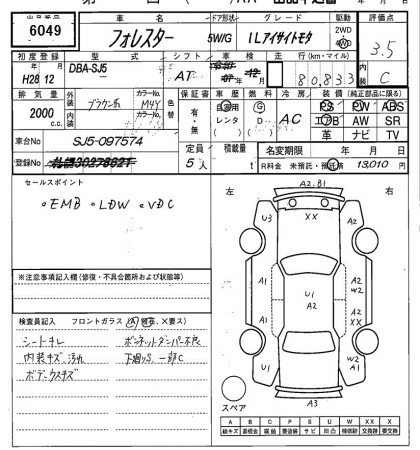 出品番号 車名 ドア形状 グレード 駆動 評価点
6049 フォレスター 5W/G ILアイサイトモタ 2WD 4WD 3.5
初度登録 型式 シフト 車検 走行(km・マイル) 内装
年 月
H28 12 DBA-SJ5 AT 年 月 80,833 C
排気量 外装 カラーNo. 色替 保証書 車歴 燃料 冷房 装備(純正部品に限る)
2000 c.c. ブラウン系 M4Y 有・無 自家用 G AC PS PW ABS
内装 カラーNo. レンタ D エアB AW SR
革 ナビ TV
車台No SJ5-097574 定員 積載量 名変期限 年 月 日
登録No 5人 t R料金 未預託・預託済 13,010 円
セールスポイント
・EMB ・LDW ・VDC
左 右
A2.B1
XX
U3 A2
A1 U1 A2 A2 W2
A1 A2 XX
W2 A1 A1
A3
スペア
※注意事項記入欄(修復・不具合箇所および状態等)
検査員記入 フロントガラス(A、飛石、X要ス)
シートキレ ボンネットダンパー不良
内装キズ、汚れ 下廻りS 一部C
ボデーウスキズ
A B C P S U W X XX
線キズ 要板金 腐蝕 要塗装 サビ 凹凸 補修跡 要交換 交換跡